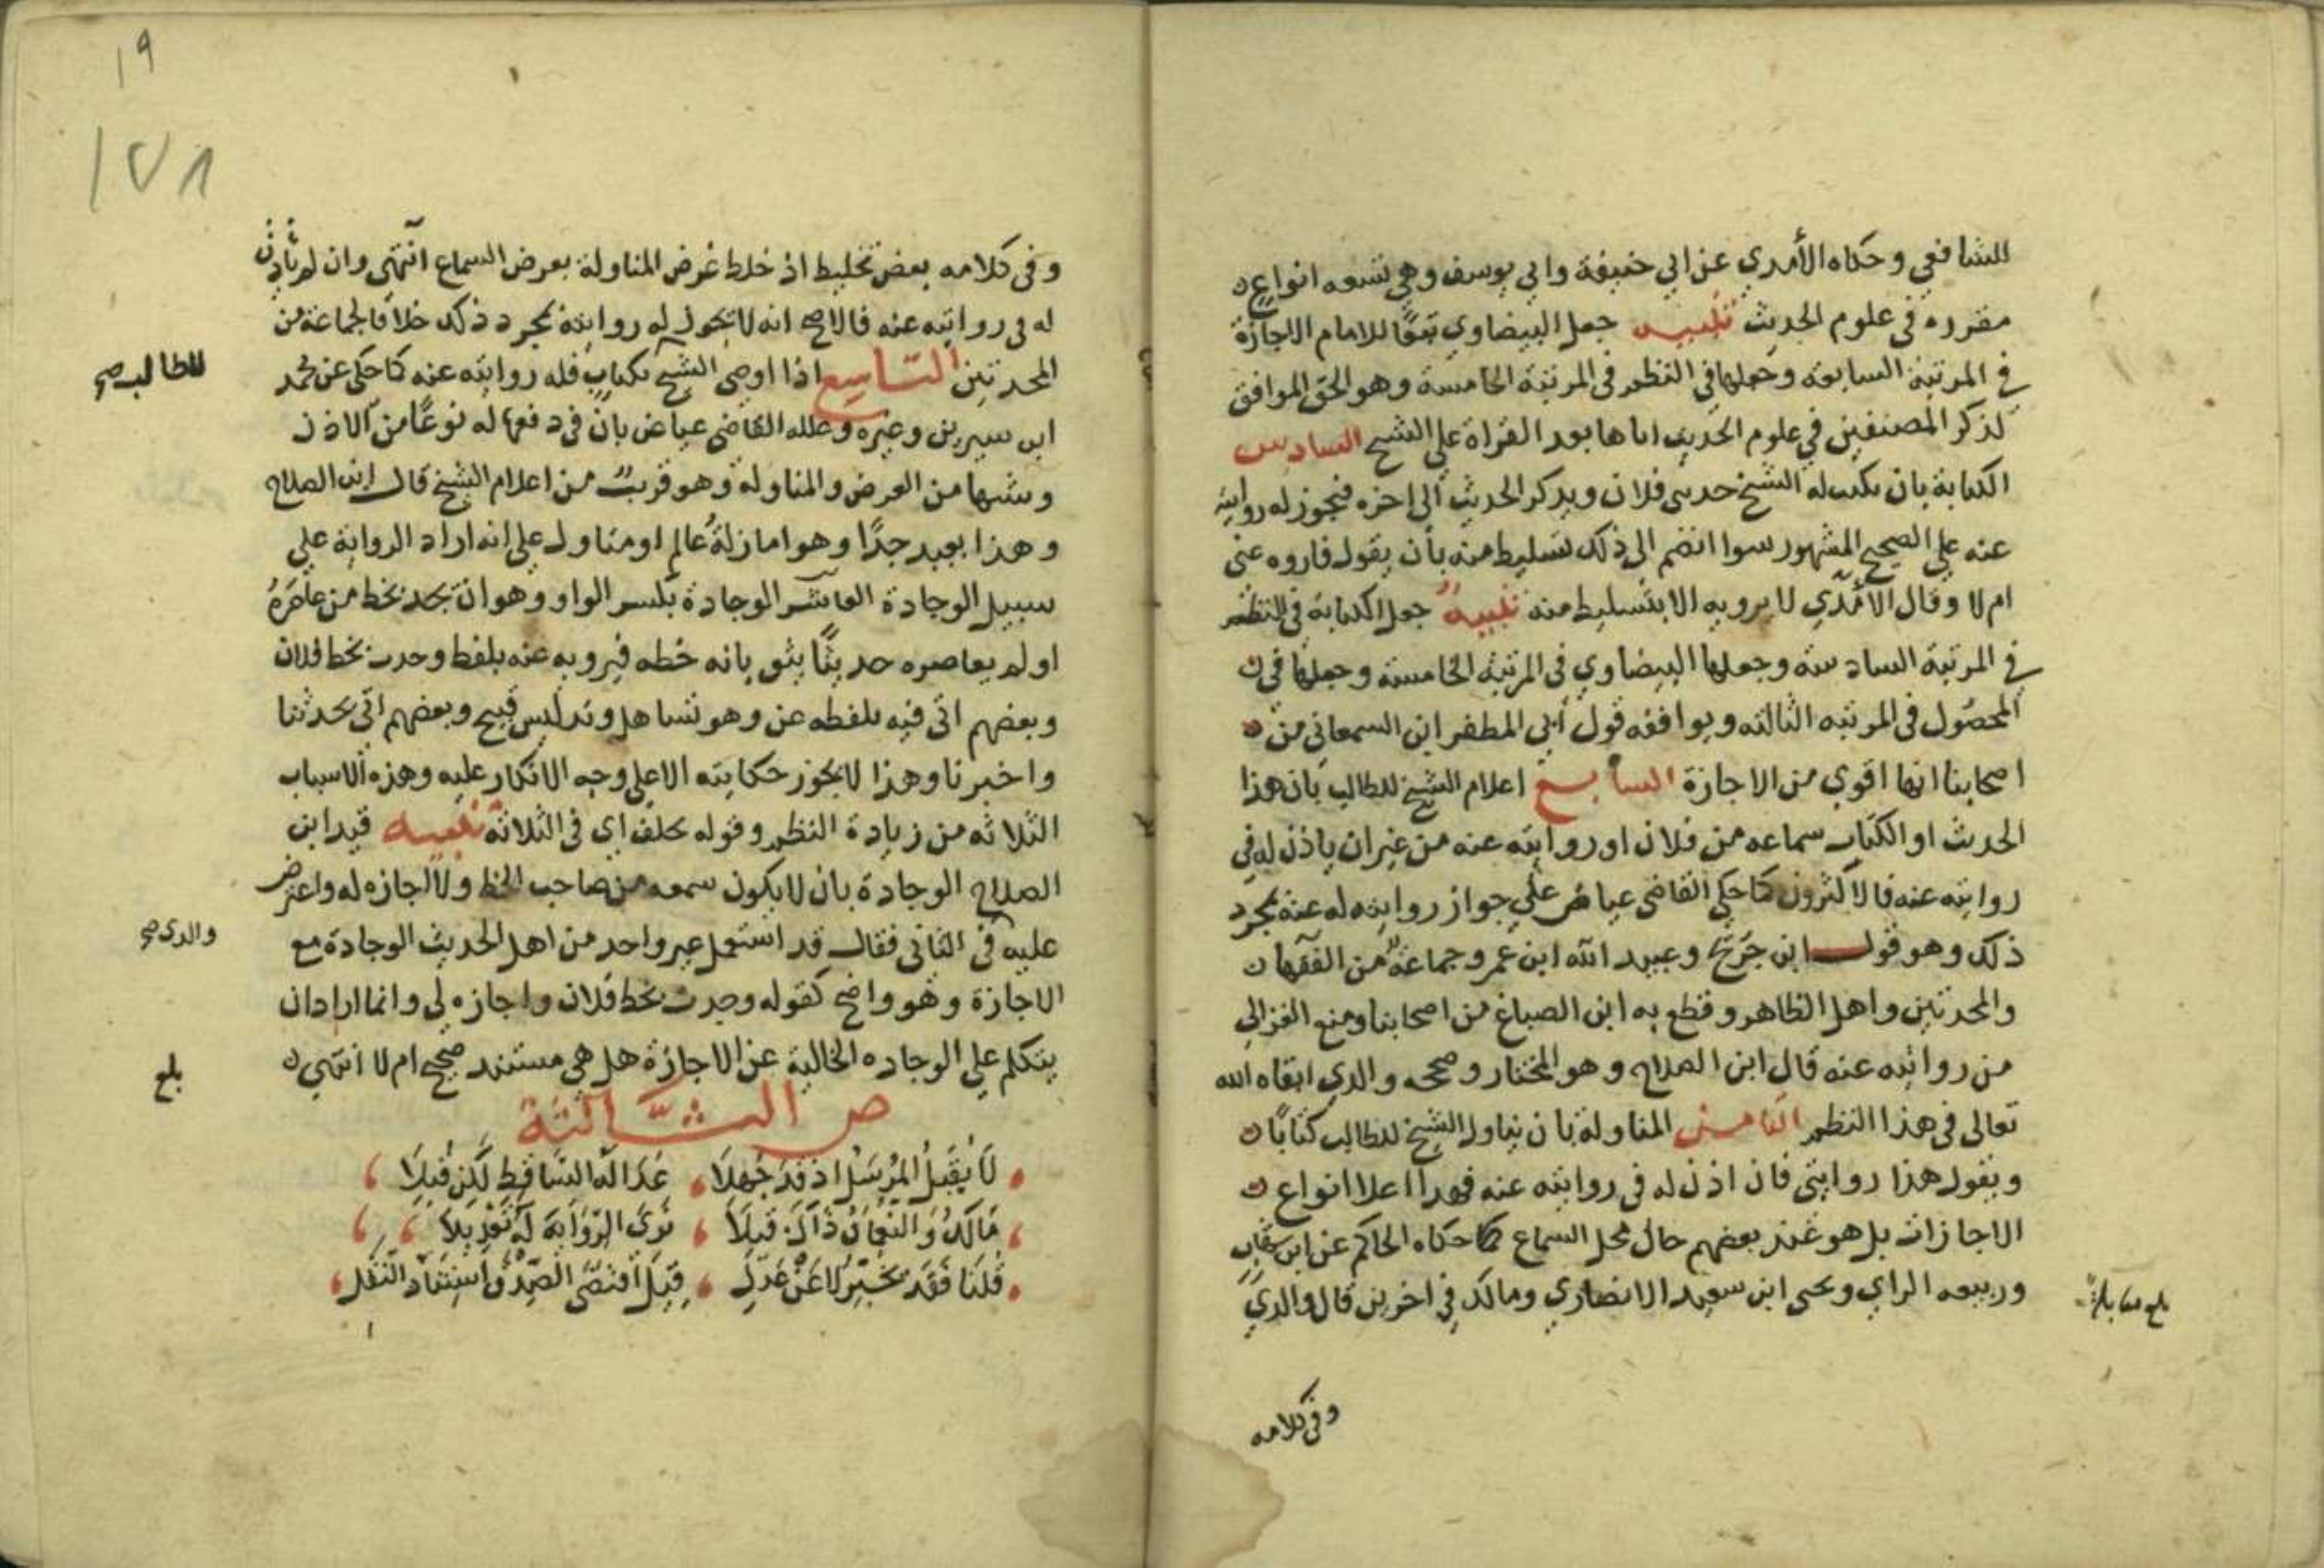 للشافعي وحكاه الأمدي عن ابي حنيفة وابي يوسف وهي تسعه انواع
مقرره في علوم الحديث تنبيه جعل البيضاوي تبعًا للامام الاجازة
في المرتبة السابعة وجعلها في النظم في المرتبة الخامسة وهو الحق الموافق
لذكر المصنفين في علوم الحديث اياها بعد القراة علي الشيخ السادس
الكتابة بان يكتب له الشيخ حدثني فلان ويذكر الحديث الى اخره فيجوز له روايته
عنه علي الصحيح المشهور سوا انضم الى ذلك تسليط منه بأن يقول فاروه عني
ام لا وقال الأمدي لا يرويه الا بتسليط منه تنبيه جعل الكتابة في النظم
في المرتبة السادسة وجعلها البيضاوي في المرتبة الخامسة وجعلها في
المحصول في المرتبه الثالثه ويوافقه قول أبي المظفر ابن السمعاني من
اصحابنا انها اقوي من الاجازة السابع اعلام الشيخ للطالب بان هذا
الحديث او الكتاب سماعه من فلان او روايته عنه من غيران ياذن له في
روايته عنه فالاكثرون كما حكي القاضي عياض علي جواز روايته له عنه بمجرد
ذلك وهو قول ابن جريج وعبيد الله ابن عمر وجماعة من الفقها
والمحدثين واهل الظاهر وقطع به ابن الصباغ من اصحابنا ومنع الغزالي
من روايته عنه قال ابن الصلاح وهو المختار وصححه والدي ابقاه الله
تعالى في هذا النظم الثامن المناولة بان يناول الشيخ للطالب كتابًا
ويقول هذا روايتي فان اذن له في روايته عنه فهذا اعلا انواع
الاجازات بل هو عند بعضهم حال محل السماع كما حكاه الحاكم عن ابن شهاب
وربيعه الراي ويحيى ابن سعيد الانصاري ومالك في اخرين قال والدي
بلغ مقابلة
وفي كلامه
١٩
١٧٨
وفي كلامه بعض تخليط اذ خلط عرض المناولة بعرض السماع انتهى وان لم يأذن
له في روايته عنه فالاصح انه لا تجوز له روايته بمجرد ذلك خلافا لجماعة من
المحدثين التاسع اذا اوصى الشيخ بكتاب فله روايته عنه كما حكي عن محمد
للطالب صح
ابن سيرين وغيره وعلله القاضي عياض بان في دفعها له نوعًا من الاذن
وشبها من العرض والمناولة وهو قريب من اعلام الشيخ قال ابن الصلاح
وهذا بعيد جدًا وهو اما زلة عالم او متاول علي انه اراد الرواية علي
سبيل الوجادة العاشر الوجادة بكسر الواو وهو ان يجد بخط من عاصره
او لم يعاصره حديثًا يثق بانه خطه فيرويه عنه بلفظ وجدت بخط فلان
وبعضهم اتى فيه بلفظه عن وهو تساهل وتدليس قبيح وبعضهم اتى بحدثنا
واخبرنا وهذا لا يجوز حكايته الا على وجه الانكار عليه وهذه الاسباب
الثلاثه من زيادة النظم وقوله بخلف اي في الثلاثة تنبيه قيد ابن
الصلاح الوجادة بان لا يكون سمعه من صاحب الخط ولا اجازه له واعترض
عليه في الثاني فقال قد استعمل غير واحد من اهل الحديث الوجادة مع
والدي صح
الاجازة وهو واضح كقوله وجدت بخط فلان واجازه لي وانما اراد ان
يتكلم علي الوجاده الخالية عن الاجازة هل هي مستند صحيح ام لا انتهى
بلغ
ص الثالثة
لا يقبل المرسل اذ قد جهلا عدالة الساقط لكن قبلا
مالك والنعمان ذاك قبلا نرى الرواية له تعديلا
قلنا فقد يخبر لا عن عدل قيل اقتضى الصدق استناد النقل